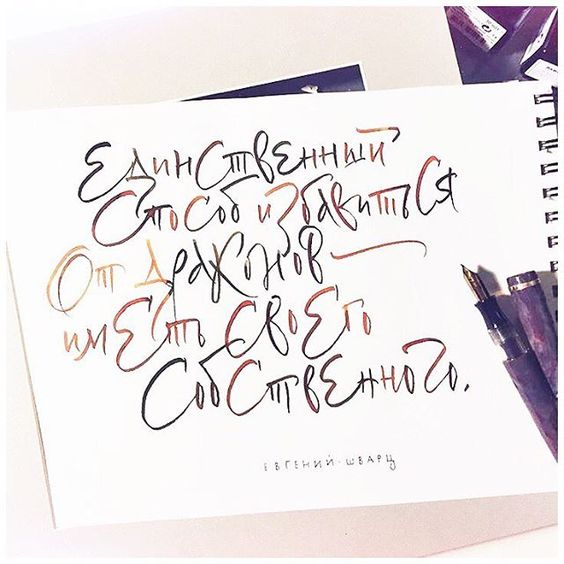 Единственный
способ избавиться
от драконов —
иметь своего
собственного.
Евгений • Шварц